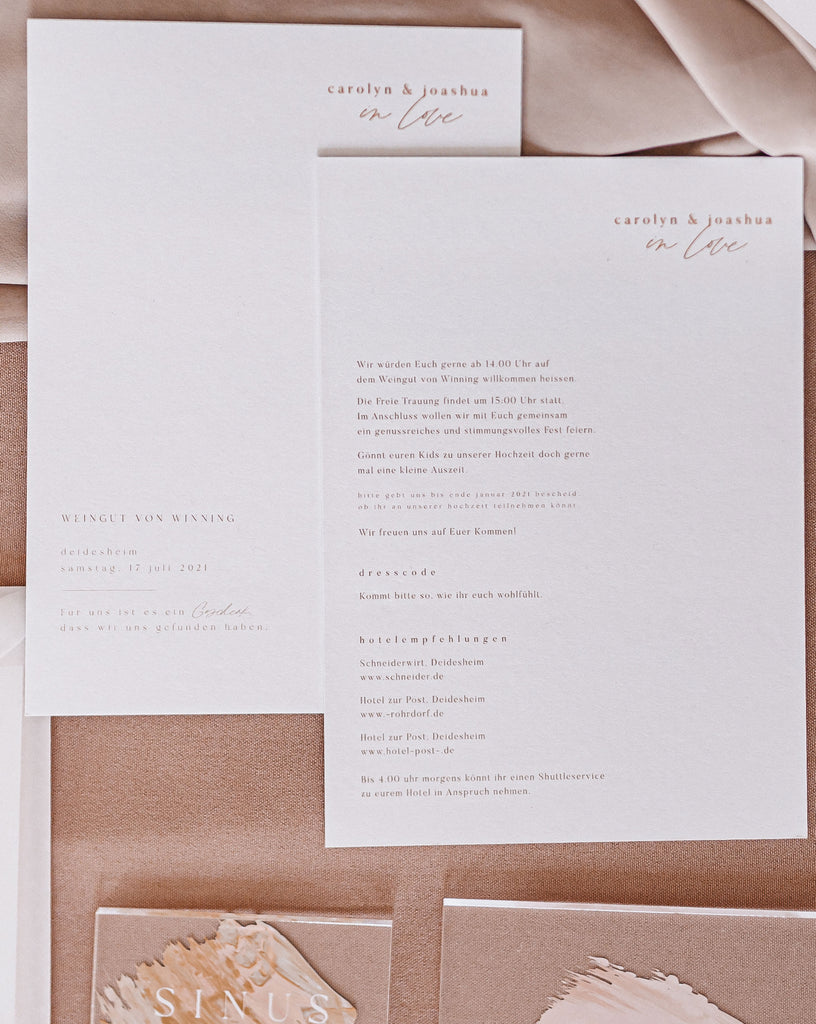 carolyn & joashua
in love
WEINGUT VON WINNING
deidesheim
samstag, 17 juli 2021
Für uns ist es ein Geschenk
dass wir uns gefunden haben.
carolyn & joashua
in love
Wir würden Euch gerne ab 14.00 Uhr auf
dem Weingut von Winning willkommen heissen.
Die Freie Trauung findet um 15:00 Uhr statt.
Im Anschluss wollen wir mit Euch gemeinsam
ein genussreiches und stimmungsvolles Fest feiern.
Gönnt euren Kids zu unserer Hochzeit doch gerne
mal eine kleine Auszeit.
bitte gebt uns bis ende januar 2021 bescheid
ob ihr an unserer hochzeit teilnehmen könnt.
Wir freuen uns auf Euer Kommen!
dresscode
Kommt bitte so, wie ihr euch wohlfühlt.
hotelempfehlungen
Schneiderwirt, Deidesheim
www.schneider.de
Hotel zur Post, Deidesheim
www.-rohrdorf.de
Hotel zur Post, Deidesheim
www.hotel-post-.de
Bis 4.00 uhr morgens könnt ihr einen Shuttleservice
zu eurem Hotel in Anspruch nehmen.
SINUS